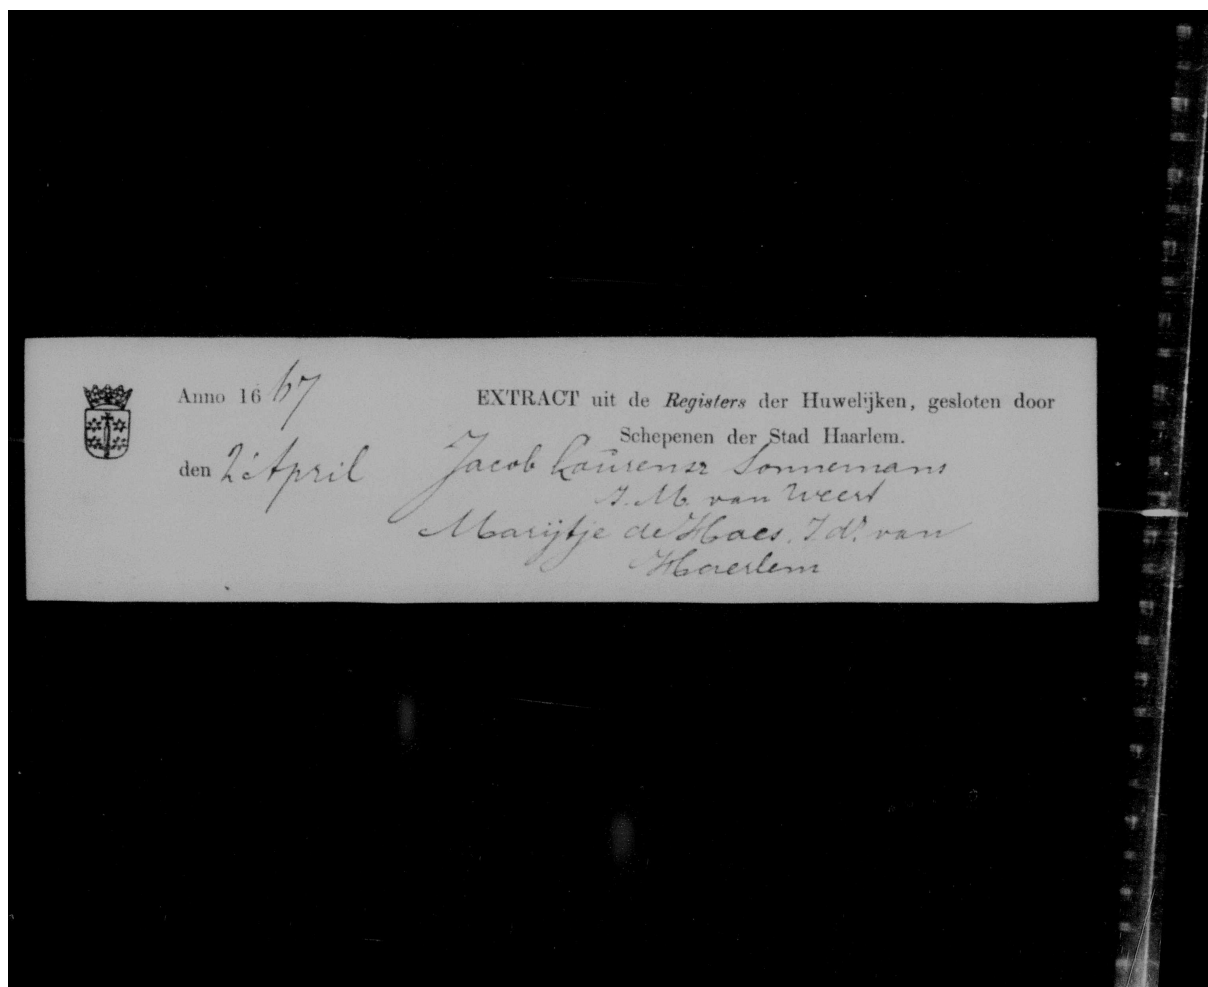 Anno 1667
EXTRACT uit de Registers der Huwelijken, gesloten door
Schepenen der Stad Haarlem.
den 2 April
Jacob Laurensz Sonnemans
J. M. van Weert
Marijtje de Haes. J dr. van
Haerlem